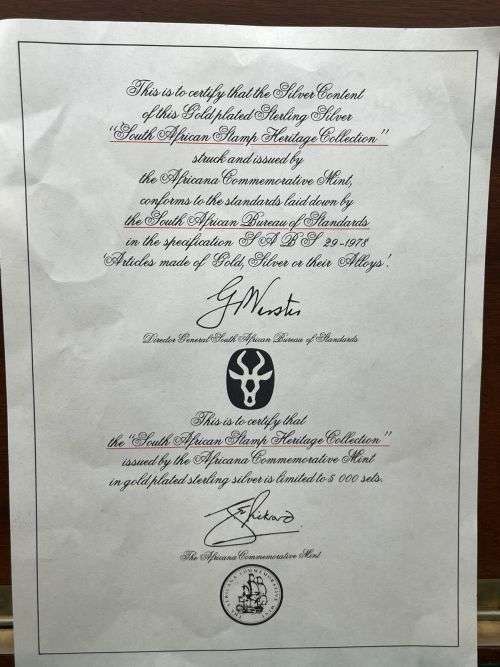 This is to certify that the Silver Content
of this Gold plated Sterling Silver
"South African Stamp Heritage Collection"
struck and issued by
the Africana Commemorative Mint,
conforms to the standards laid down by
the South African Bureau of Standards
in the specification S A B S 29-1978
'Articles made of Gold, Silver or their Alloys'.
Director General South African Bureau of Standards
This is to certify that
the "South African Stamp Heritage Collection"
issued by the Africana Commemorative Mint
in gold plated sterling silver is limited to 5 000 sets.
The Africana Commemorative Mint
THE AFRICANA COMMEMORATIVE MINT